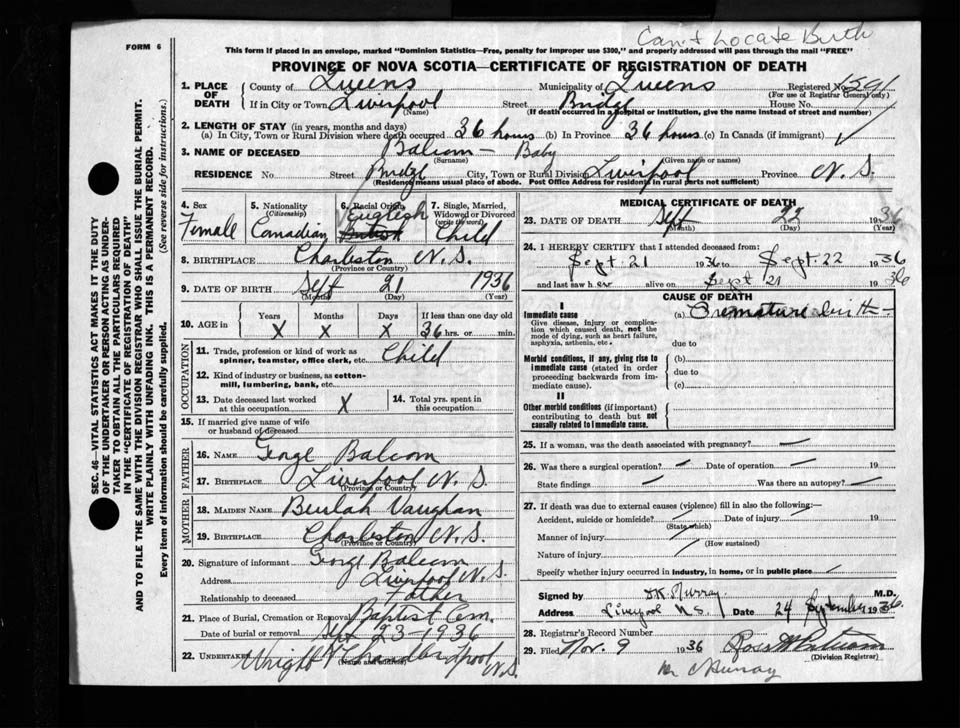 Can't Locate Birth
FORM 6
This form if placed in an envelope, marked "Dominion Statistics—Free, penalty for improper use $300," and properly addressed will pass through the mail "FREE"
PROVINCE OF NOVA SCOTIA—CERTIFICATE OF REGISTRATION OF DEATH
SEC. 46—VITAL STATISTICS ACT MAKES IT THE DUTY
OF THE UNDERTAKER OR PERSON ACTING AS UNDER-
TAKER TO OBTAIN ALL THE PARTICULARS REQUIRED
IN THE "CERTIFICATE OF REGISTRATION OF DEATH"
AND TO FILE THE SAME WITH THE DIVISION REGISTRAR WHO SHALL ISSUE THE BURIAL PERMIT.
WRITE PLAINLY WITH UNFADING INK. THIS IS A PERMANENT RECORD.
Every item of information should be carefully supplied. (See reverse side for instructions.)
1. PLACE OF DEATH County of Queens Municipality of Queens Registered No. 1591
(For use of Registrar General only)
If in City or Town Liverpool Street Bridge House No.
(Name) (If death occurred in a hospital or institution, give the name instead of street and number)
2. LENGTH OF STAY (in years, months and days)
(a) In City, Town or Rural Division where death occurred 36 hours (b) In Province 36 hours (c) In Canada (if immigrant)
3. NAME OF DECEASED Balcom — Baby
(Surname) (Given name or names)
RESIDENCE No. Street Bridge City, Town or Rural Division Liverpool Province N. S.
(Residence means usual place of abode. Post Office Address for residents in rural parts not sufficient)
4. Sex Female
5. Nationality (Citizenship) Canadian
6. Racial Origin English British
7. Single, Married, Widowed or Divorced (write the word) Child
8. BIRTHPLACE Charleston N. S.
(Province or Country)
9. DATE OF BIRTH Sept 21 1936
(Month) (Day) (Year)
10. AGE in Years Months Days If less than one day old
X X X 36 hrs. or min.
OCCUPATION
11. Trade, profession or kind of work as spinner, teamster, office clerk, etc. Child
12. Kind of industry or business, as cotton-mill, lumbering, bank, etc.
13. Date deceased last worked at this occupation X
14. Total yrs. spent in this occupation
15. If married give name of wife or husband of deceased
FATHER
16. NAME George Balcom
17. BIRTHPLACE Liverpool N. S.
(Province or Country)
MOTHER
18. MAIDEN NAME Beulah Vaughan
19. BIRTHPLACE Charleston N. S.
(Province or Country)
20. Signature of informant George Balcom
Address Liverpool N. S.
Relationship to deceased Father
21. Place of Burial, Cremation or Removal Baptist Cem.
Date of burial or removal Sept 23 - 1936
22. UNDERTAKER Wright Chandler Lpool N.S.
(Name and address)
MEDICAL CERTIFICATE OF DEATH
23. DATE OF DEATH Sept 22 1936
(Month) (Day) (Year)
24. I HEREBY CERTIFY that I attended deceased from:
Sept. 21 1936 to Sept. 22 1936
and last saw her alive on Sept 21 1936
CAUSE OF DEATH
I
Immediate cause (a) Premature birth -
Give disease, injury or complication which caused death, not the mode of dying, such as heart failure, asphyxia, asthenia, etc. due to
Morbid conditions, if any, giving rise to immediate cause (stated in order proceeding backwards from immediate cause). (b) due to (c)
II
Other morbid conditions (if important) contributing to death but not causally related to immediate cause.
25. If a woman, was the death associated with pregnancy? —
26. Was there a surgical operation? — Date of operation — 19
State findings — Was there an autopsy? —
27. If death was due to external causes (violence) fill in also the following:—
Accident, suicide or homicide? Date of injury 19
(State which)
Manner of injury
(How sustained)
Nature of injury
Specify whether injury occurred in industry, in home, or in public place
Signed by Murray M.D.
Address Liverpool N.S. Date 24 September 1936
28. Registrar's Record Number
29. Filed Nov. 9 1936
(Division Registrar)